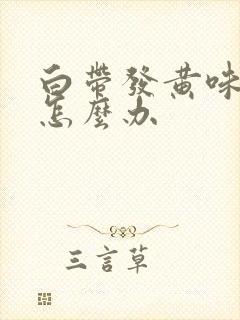 白带發黄味
怎麼办
三言草